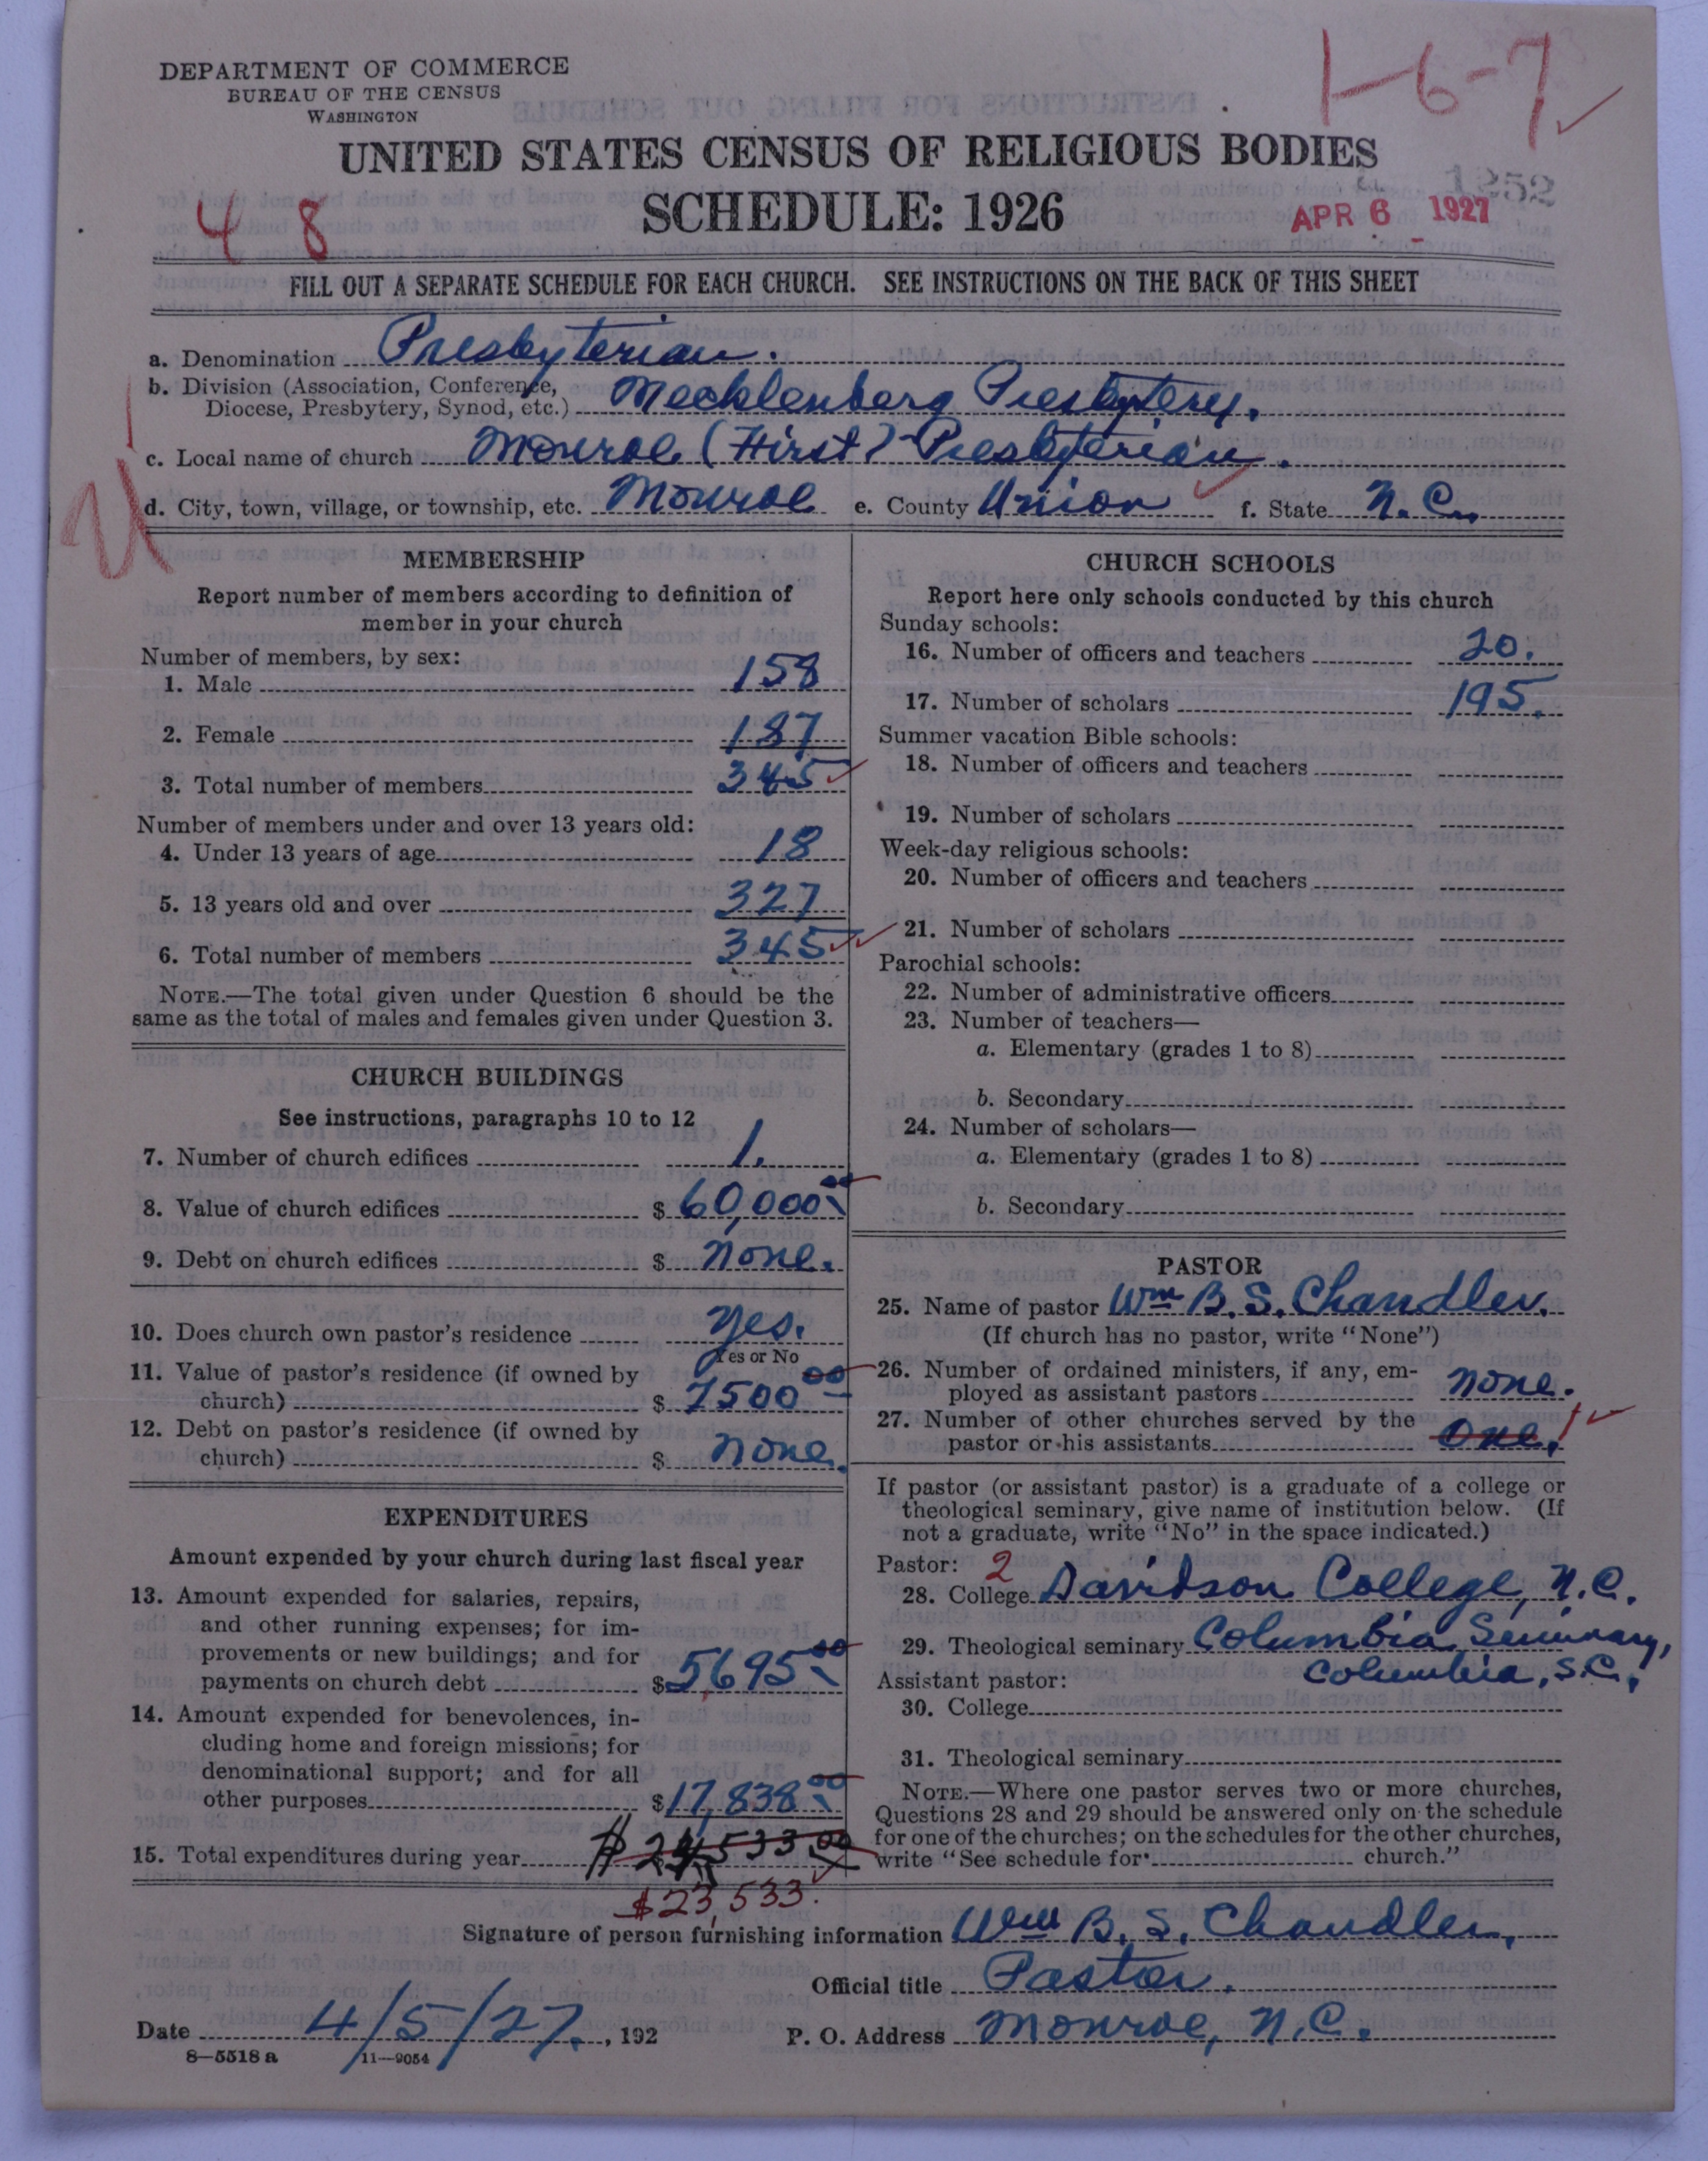 1-6-7
DEPARTMENT OF COMMERCE
BUREAU OF THE CENSUS
WASHINGTON
UNITED STATES CENSUS OF RELIGIOUS BODIES
SCHEDULE: 1926
1252
APR 6 1927
4 8
FILL OUT A SEPARATE SCHEDULE FOR EACH CHURCH. SEE INSTRUCTIONS ON THE BACK OF THIS SHEET
a. Denomination Presbyterian.
b. Division (Association, Conference,
Diocese, Presbytery, Synod, etc.) Mecklenburg Presbytery.
c. Local name of church Monroe (First) Presbyterian.
d. City, town, village, or township, etc. Monroe e. County Union f. State N.C.
MEMBERSHIP
Report number of members according to definition of
member in your church
Number of members, by sex:
1. Male 158
2. Female 187
3. Total number of members 345
Number of members under and over 13 years old:
4. Under 13 years of age 18
5. 13 years old and over 327
6. Total number of members 345
NOTE.—The total given under Question 6 should be the
same as the total of males and females given under Question 3.
CHURCH BUILDINGS
See instructions, paragraphs 10 to 12
7. Number of church edifices 1.
8. Value of church edifices $ 60,000 00
9. Debt on church edifices $ none.
10. Does church own pastor's residence yes.
Yes or No
11. Value of pastor's residence (if owned by
church) $ 7500 00
12. Debt on pastor's residence (if owned by
church) $ none.
EXPENDITURES
Amount expended by your church during last fiscal year
13. Amount expended for salaries, repairs,
and other running expenses; for im-
provements or new buildings; and for
payments on church debt $ 5,695 00
14. Amount expended for benevolences, in-
cluding home and foreign missions; for
denominational support; and for all
other purposes $ 17,838 00
15. Total expenditures during year $ 24,533 00
$23,533.
CHURCH SCHOOLS
Report here only schools conducted by this church
Sunday schools:
16. Number of officers and teachers 20.
17. Number of scholars 195.
Summer vacation Bible schools:
18. Number of officers and teachers
19. Number of scholars
Week-day religious schools:
20. Number of officers and teachers
21. Number of scholars
Parochial schools:
22. Number of administrative officers
23. Number of teachers—
a. Elementary (grades 1 to 8)
b. Secondary
24. Number of scholars—
a. Elementary (grades 1 to 8)
b. Secondary
PASTOR
25. Name of pastor Wm B. S. Chandler.
(If church has no pastor, write "None")
26. Number of ordained ministers, if any, em-
ployed as assistant pastors none.
27. Number of other churches served by the
pastor or his assistants One. 1
If pastor (or assistant pastor) is a graduate of a college or
theological seminary, give name of institution below. (If
not a graduate, write "No" in the space indicated.)
Pastor: 2
28. College Davidson College, N.C.
29. Theological seminary Columbia Seminary,
Columbia, S.C.,
Assistant pastor:
30. College
31. Theological seminary
NOTE.—Where one pastor serves two or more churches,
Questions 28 and 29 should be answered only on the schedule
for one of the churches; on the schedules for the other churches,
write "See schedule for church."
Signature of person furnishing information Wm B. S. Chandler,
Official title Pastor.
Date 4/5/27., 192 P. O. Address Monroe, N.C.
8—5518 a 11—9054